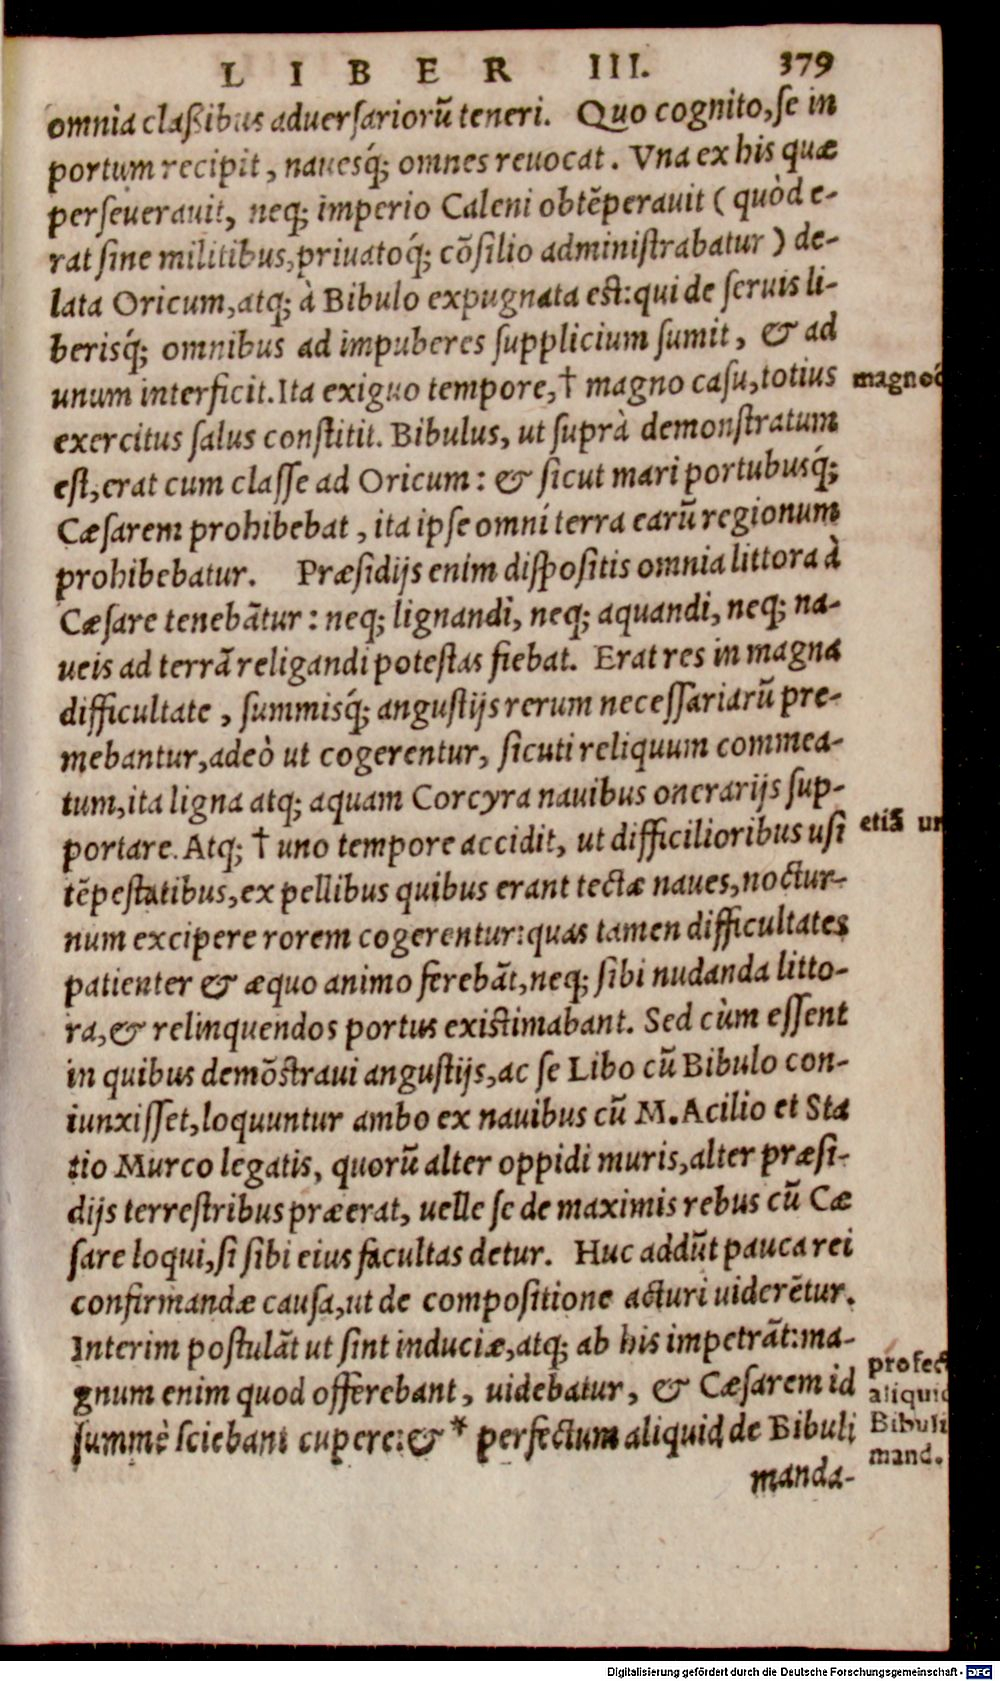 LIBER III. 379
omnia claßibus aduersariorũ teneri. Quo cognito, se in
portum recipit, nauesq́; omnes reuocat. Vna ex his quæ
perseuerauit, neq; imperio Caleni obtẽperauit (quòd e-
rat sine militibus, priuatoq́; cõsilio administrabatur) de-
lata Oricum, atq; à Bibulo expugnata est: qui de seruis li-
berisq́; omnibus ad impuberes supplicium sumit, & ad
unum interficit. Ita exiguo tempore, † magno casu, totius
exercitus salus constitit. Bibulus, ut suprà demonstratum
est, erat cum classe ad Oricum: & sicut mari portubusq́;
Cæsarem prohibebat, ita ipse omni terra earũ regionum
prohibebatur. Præsidijs enim dispositis omnia littora à
Cæsare tenebãtur: neq; lignandi, neq; aquandi, neq; na-
ueis ad terrã religandi potestas fiebat. Erat res in magna
difficultate, summisq́; angustijs rerum necessariarũ pre-
mebantur, adeò ut cogerentur, sicuti reliquum commea-
tum, ita ligna atq; aquam Corcyra nauibus onerarijs sup-
portare. Atq; † uno tempore accidit, ut difficilioribus usi
tẽpestatibus, ex pellibus quibus erant tectæ naues, noctur-
num excipere rorem cogerentur: quas tamen difficultates
patienter & æquo animo ferebãt, neq; sibi nudanda litto-
ra, & relinquendos portus existimabant. Sed cùm essent
in quibus demõstraui angustijs, ac se Libo cũ Bibulo con-
iunxisset, loquuntur ambo ex nauibus cũ M. Acilio et Sta
tio Murco legatis, quorũ alter oppidi muris, alter præsi-
dijs terrestribus præerat, uelle se de maximis rebus cũ Cæ
sare loqui, si sibi eius facultas detur. Huc addũt pauca rei
confirmandæ causa, ut de compositione acturi uiderẽtur.
Interim postulãt ut sint induciæ, atq; ab his impetrãt: ma-
gnum enim quod offerebant, uidebatur, & Cæsarem id
summè sciebant cupere: & * perfectum aliquid de Bibuli
manda-
etiã
Bibuli
mand.
Digitalisierung gefördert durch die Deutsche Forschungsgemeinschaft - DFG